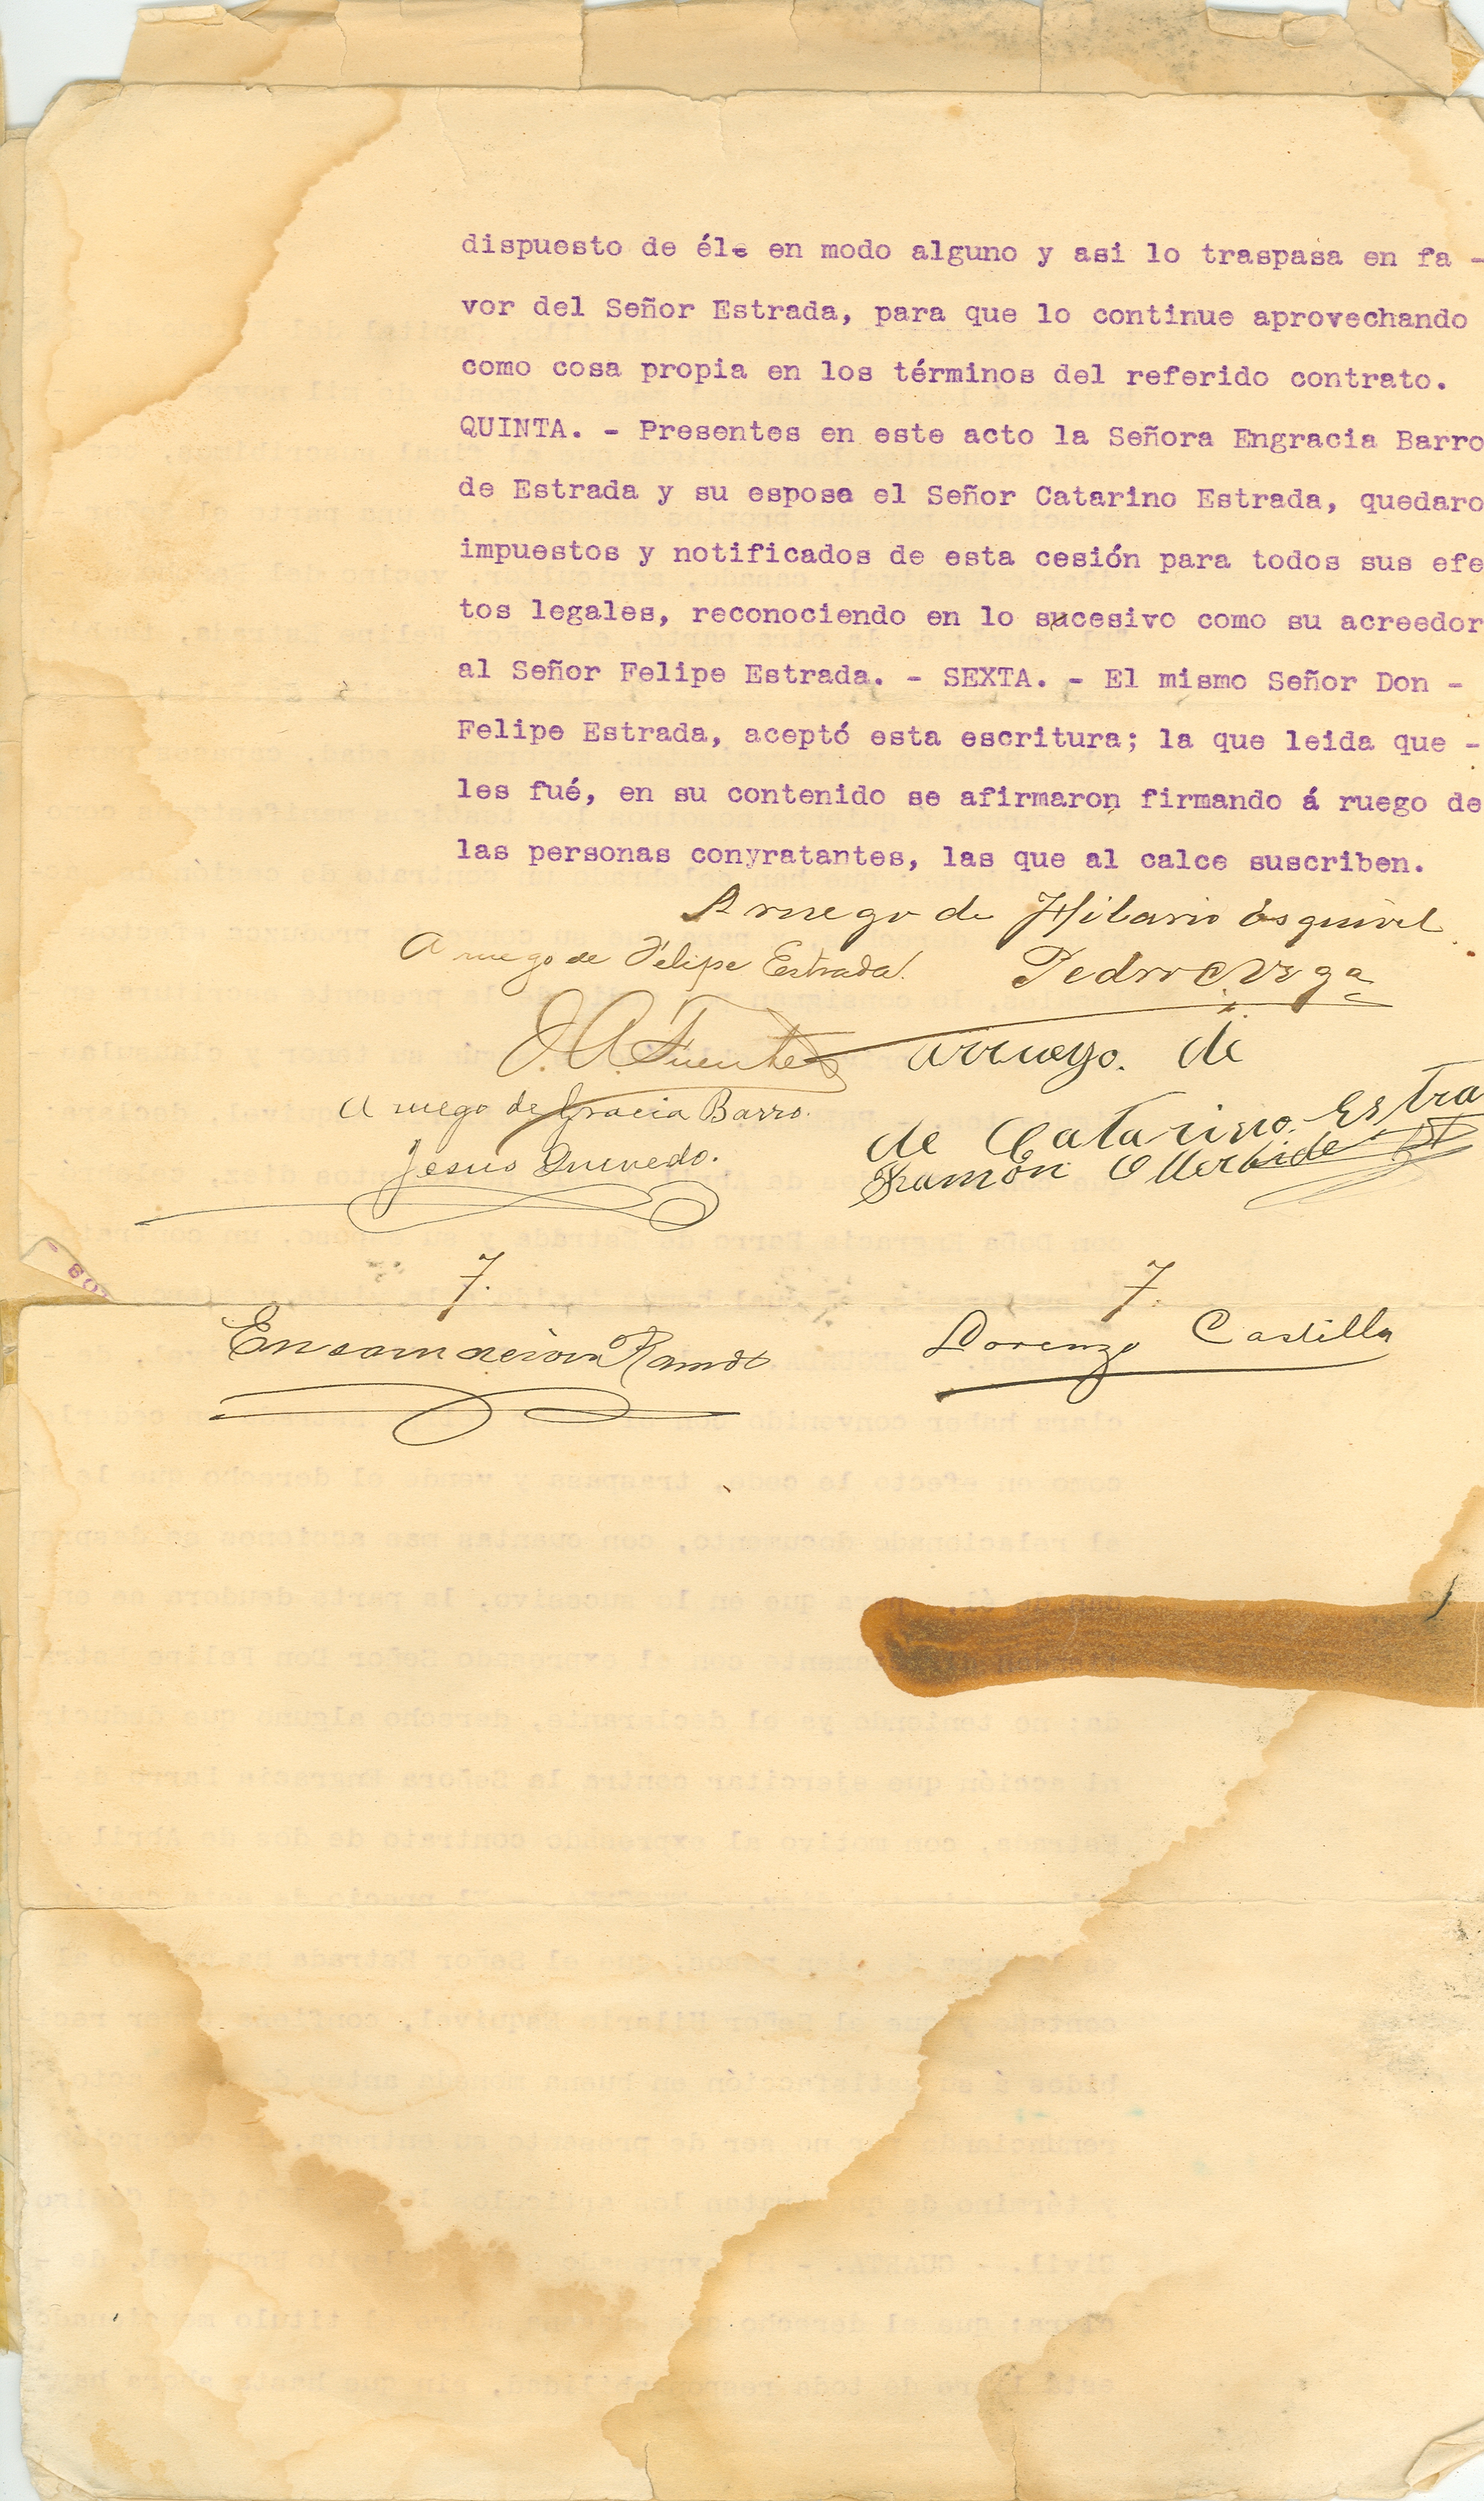 dispuesto de él en modo alguno y asi lo traspasa en fa -
vor del Señor Estrada, para que lo continue aprovechando
como cosa propia en los términos del referido contrato.
QUINTA. - Presentes en este acto la Señora Engracia Barro
de Estrada y su esposo el Señor Catarino Estrada, quedaro
impuestos y notificados de esta cesión para todos sus efe
tos legales, reconociendo en lo sucesivo como su acreedor
al Señor Felipe Estrada. - SEXTA. - El mismo Señor Don -
Felipe Estrada, aceptó esta escritura; la que leida que -
les fué, en su contenido se afirmaron firmando á ruego de
las personas conyratantes, las que al calce suscriben.
A ruego de Hilario Esquivel
A ruego de Felipe Estrada.
Pedro C. Vega
J. A. Fuentes
arruego. de
A ruego de Gracia Barro.
de Catarino Estra
Jesus Quevedo.
Ramón
T.
T.
Encarnacion Ramos
Lorenzo Castilla